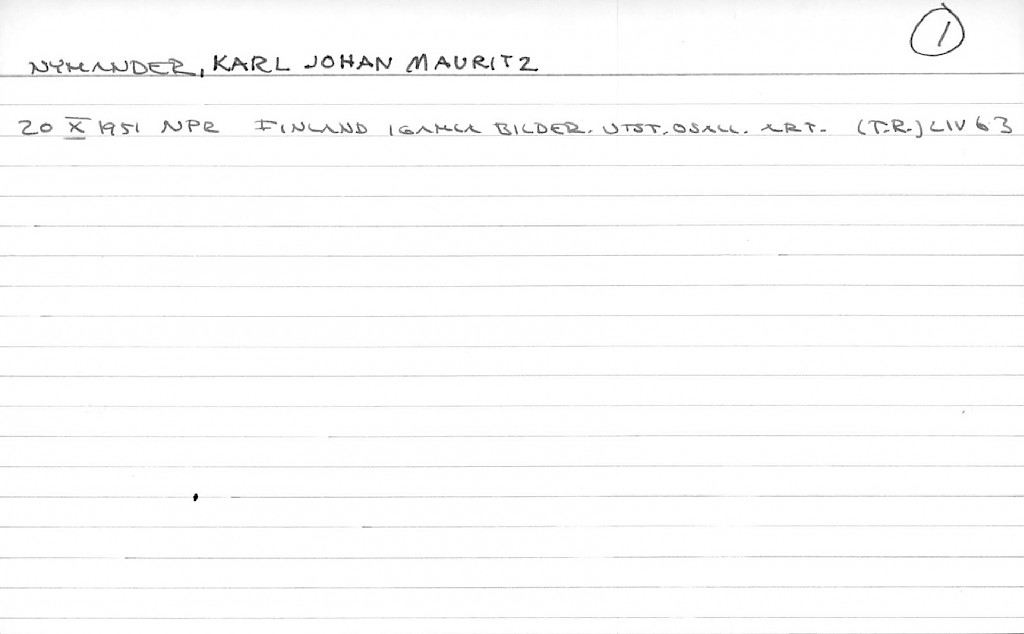 1
NYMANDER, KARL JOHAN MAURITZ
20 X 1951 NPR FINLAND I GAMLA BILDER. UTST. OSALL. ART. (T.R.) LIV 63